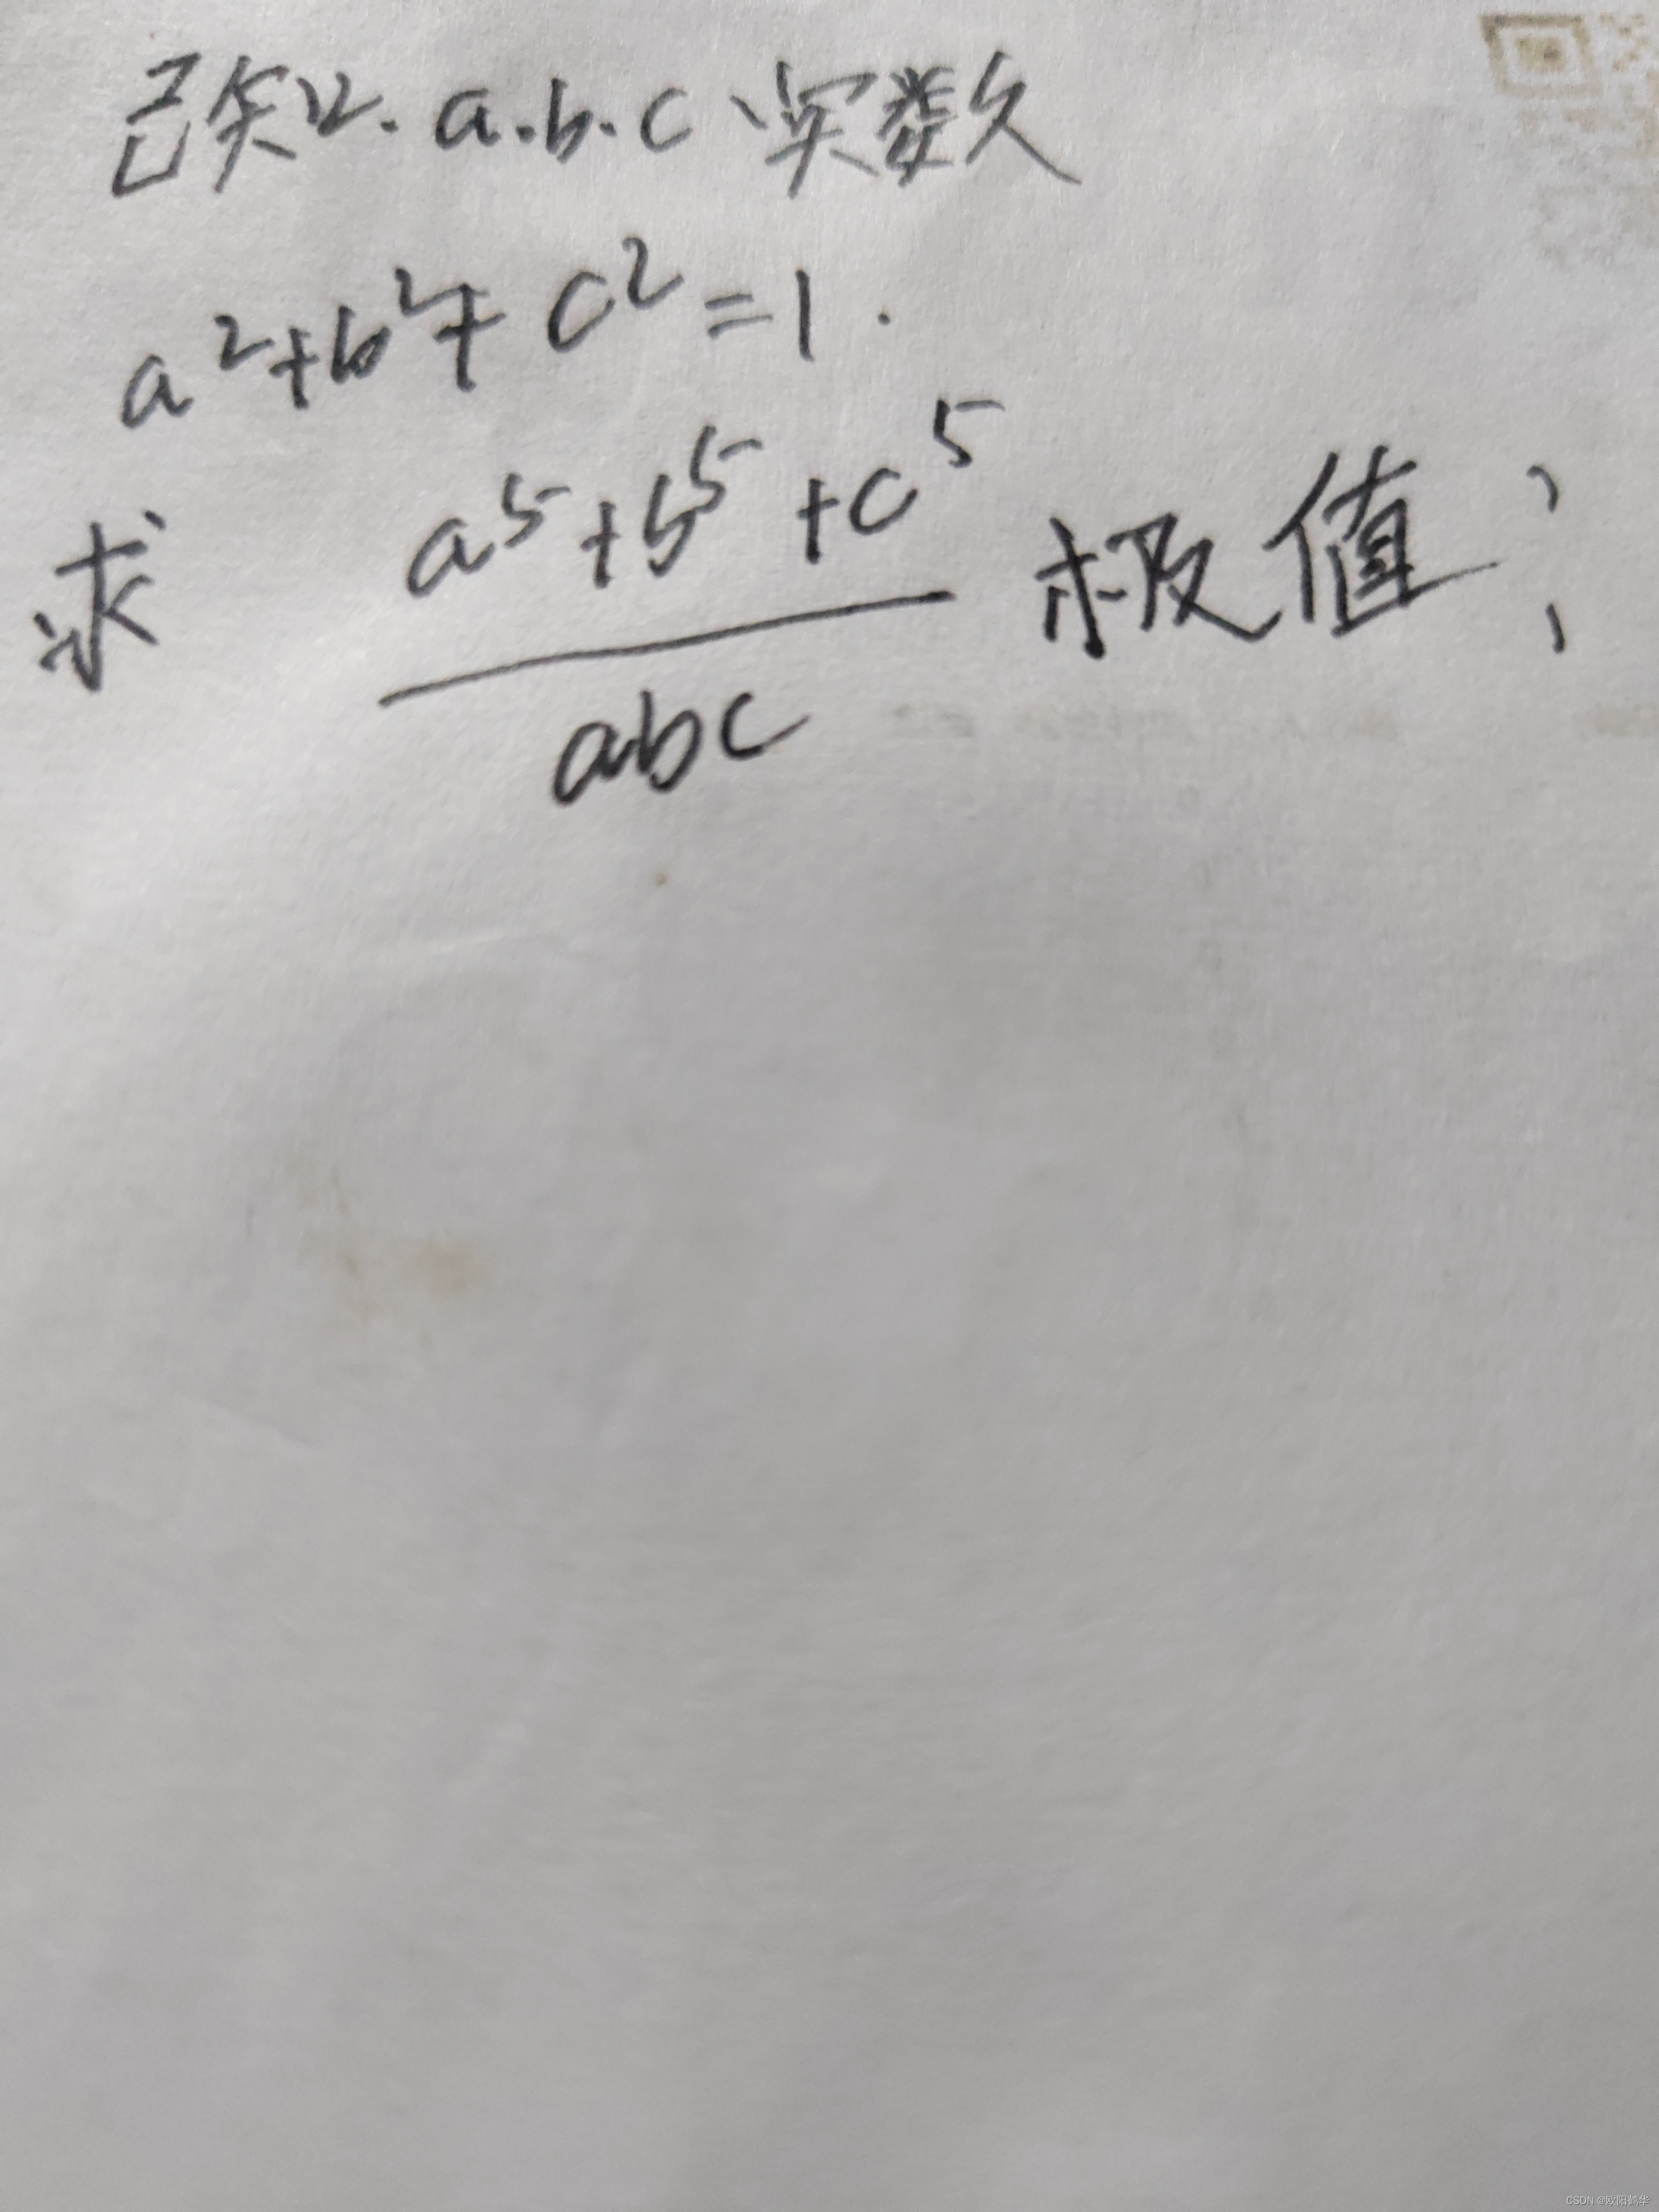 已知. a.b.c、实数
a²+b²+c²=1.
求 a⁵+b⁵+c⁵ 极值;
abc
CSDN @欧阳鹤华